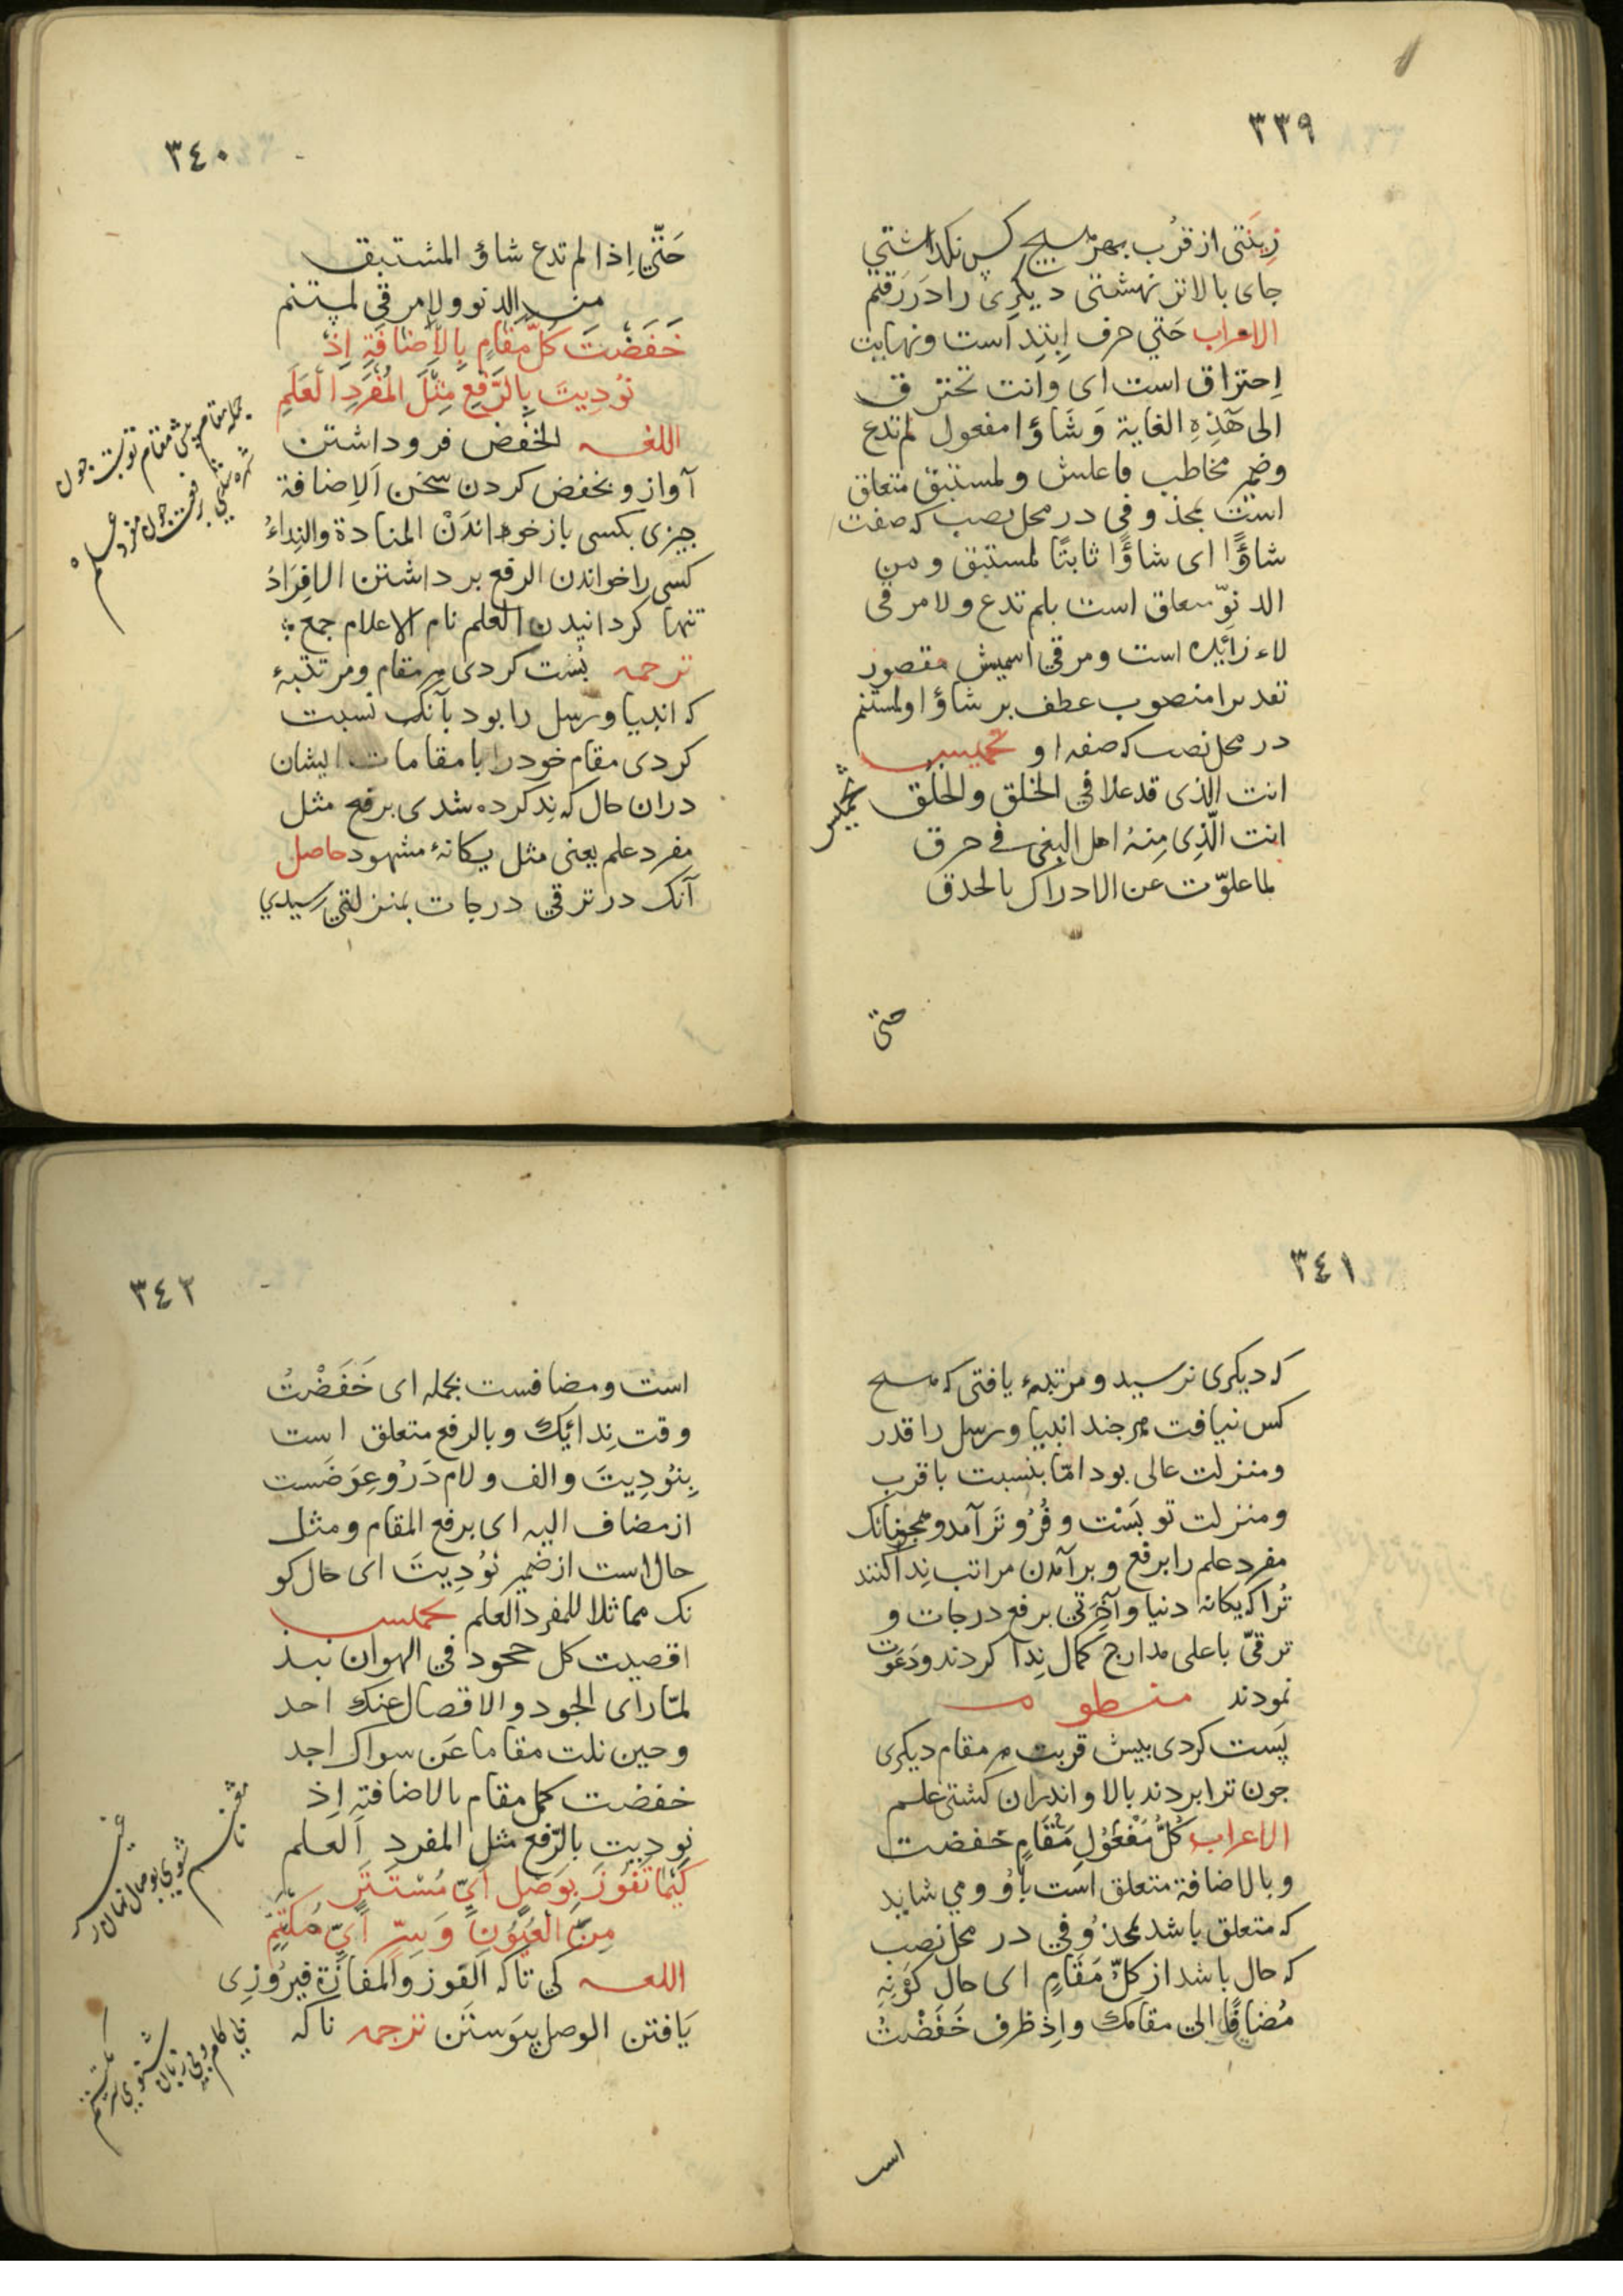 ٣٣٩
زینتی از قرب بهر هیچ کس نکداشتی
جای بالاتر نهشتی دیکری را در رقم
الاعراب حتی حرف ابتدا است و نهایت
احتراق است ای وانت تخترق
الی هذه الغایة و شاؤا مفعول لم تدع
وضمیر مخاطب فاعلش و لمستبق متعلق
است بمحذوفی در محل نصب که صفت
شاؤًا ای شاؤًا ثابتًا لمستبق و من
الدنوّ متعلق است بلم تدع و لا مرقی
لاء زائیده است و مرقی اسمیش مقصور
تقدیرا منصوب عطف بر شاؤا و لمستنم
در محل نصب که صفه او تخمیس
انت الذی قد علا فی الخلق والخلق
تخمیس
انت الّذی مِنهُ اهل البغی فی حرق
لما علوّت عن الادراک بالحدق
حتی
٣٤٠
حَتّی اِذا لم تدع شاؤ المستبق
من الدنو ولا مرقی لمستنم
خَفَضْتَ کُلَّ مَقَامٍ بِالْاِضَافَةِ اِذْ
نُوْدِیتَ بِالرَّفْعِ مِثْلَ المُفْرَدِ العَلَمِ
اللغه الخفض فرو داشتن
آواز و بخفض کردن سخن اَلاِضافة
چیزی بکسی بازخواندَنْ المنادة والنِداءُ
کسی را خواندن الرفع برداشتن الاِفِرَادُ
تنها کردانیدن العلم نام الاعلام جمع
ترجمه پست کردی هر مقام و مرتبهٔ
که انبیا و رسل را بود بآنکه نسبت
کردی مقام خود را با مقامات ایشان
دران حال که ندا کرده شدی برفع مثل
مفرد علم یعنی مثل یکانهٔ مشهود حاصل
آنکه در ترقی درجات بمنزلتی رسیدی
جمله مقامها پیش مقام تو پست چون
شده رفعت چون مفرد علم
٣٤١
که دیکری نرسید و مرتبهٔ یافتی که هیچ
کس نیافت هر چند انبیا و رسل را قدر
و منزلت عالی بود امّا بنسبت با قرب
و منزلت تو پَسْت و فُرُوتَر آمد و همچنانک
مفرد علم را برفع و برآمدن مراتب ندا کنند
تُرا که یکانهٔ دنیا و آخرتی برفع درجات و
ترقیّ باعلی مدارج کمال نِدا کردند و دَعْوَت
نمودند منظوم
پَست کردی پیش قربت هر مقام دیکری
چون ترا بردند بالا و اندران کشتی علم
الاعراب کُلُّ مَفْعُوْلِ مَقَامٍ خفضت
و بالاضافة متعلق است باو و می شاید
که متعلق باشد بمحذوفی در محل نصب
که حال باشد از کلّ مَقَامٍ ای حال کَوْنِهِ
مُضافًا الی مقامک و اِذ ظرف خَفَضْتُ
است
٣٤٢
است و مضافست بجمله ای خَفَضْتُ
وقت نِدائِکَ و بالرفع متعلق است
بِنُوْدِیتَ و الف و لام دَرُو عِوَضَست
از مضاف الیه ای برفع المقام و مثل
حال است از ضمیر نُوْدِیتَ ای حال کو
نک مماثلا للمفرد العلم تخمیس
اقصیت کل جحود فی الهوان نبذ
لمّا رای الجود والافضال عنک احد
وحین نلت مقاما عَن سواک اجد
خفضت کل مقام بالاضافة اِذ
نودیت بالرّفع مثل المفرد العلم
کَیْمَا تَفُوْزَ بِوَصْلٍ اَیِّ مُسْتَتِرٍ
مِنَ العُیُوْنِ وَ سِرٍّ اَیِّ مُکْتَتِمِ
اللغه کی تا که الفوز والمفازة فیروزی
یَافتن الوصل پیوستَن ترجمه تا که
شوی بوصال